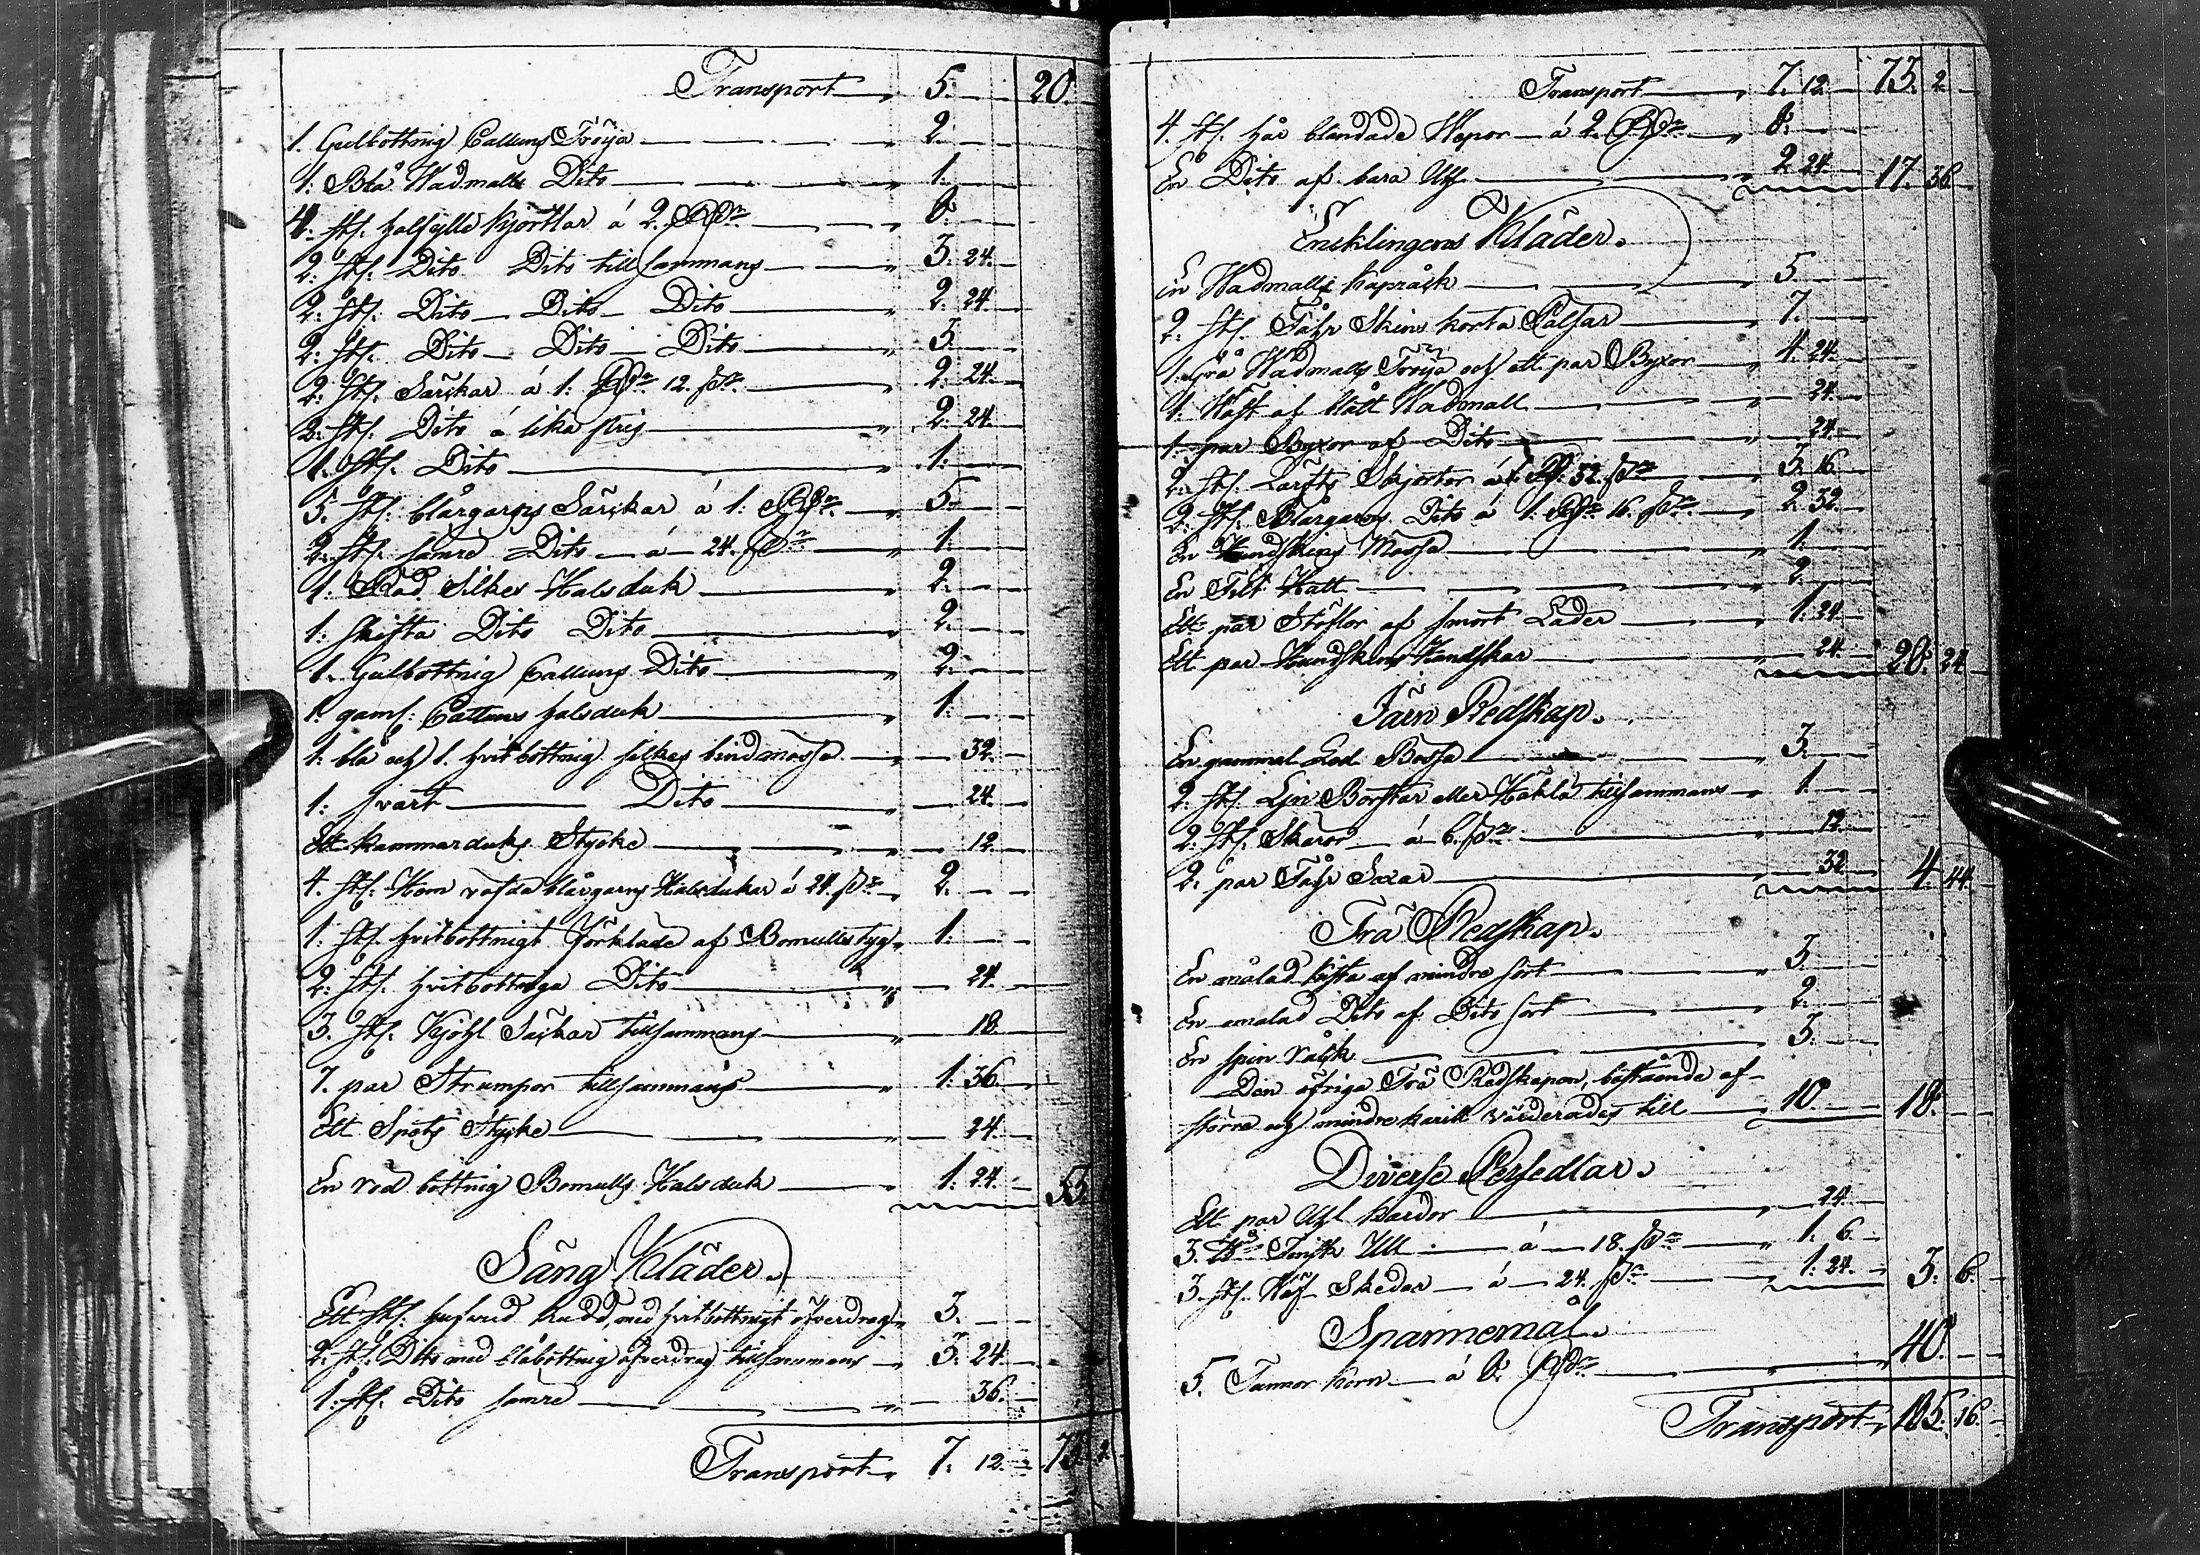 Transport 5. 20.
1. Gulbottnig Calluns Tröija 2.
1: Blå Wadmalls Dito 1.
4: st: halfylle Kjortlar á 2. Rdr 8.
2: st: Dito Dito tillsammans 3. 24.
2: st: Dito Dito Dito 2. 24
2: st: Dito Dito Dito 3.
2: st: Särkar á 1: Rdr 12. sr 2. 24.
2: st: Dito á lika pris 2. 24
1. st: Dito 1.
5. st: blårgarns Särkar á 1: Rdr 5.
2: st: sämre Dito á 24. sr 1.
1: Röd Silkes Halsduk 2.
1: skifta Dito Dito 2.
1. Gulbottnig Calluns Dito 2.
1. gaml: Cattuns halsduk 1.
1: blå och 1. hvitbottnig silkes bindmössa 32.
1: svart Dito 24.
Ett kammarduks Stycke 12.
4. st: Hem väfda blårgarns Halsdukar á 24. sr 2.
1: st: hvitbottnigt Förkläde af Bomulls tyg 1.
2: st: hvitbottniga Dito 24.
3. st: Kjohl Säckar tillsammans 18
7. par Strumpor tillsammans 1. 36.
Ett Spets Stycke 24.
En röd bottnig Bomulls Halsduk 1. 24. 53.
Säng Kläder.
Ett st: hufvud Kudd, med hvitbottnigt öfverdrag 3.
2. st: Dito med blåbottnig öfverdrag tillsammans 3. 24.
1. st: Dito sämre 36.
Transport 7. 12. 73. 2
Transport 7. 12 73. 2.
4. st: hår blandade Wepor á 2. Rdr 8.
En Dito af bara Ull 2. 24. 17. 36.
Encklingens Kläder.
En Wadmalls Kapråck 5.
2. st: Fåhr Skins korta Pälsar 7.
1. grå Wadmalls Tröija och ett par Byxor 4. 24.
1. Wäst af blått Wadmall 24.
1. par Byxor af Dito 24.
2. st: Lärfts Skjortor á 1 Rdr. 32. sr 3. 16
2. st: Blårgarns Dito á 1. Rdr 16. sr 2. 32.
En Hundskins Mössa 1.
En Filt Hatt 2.
Ett par Stöflor af smort Läder 1. 24.
Ett par Hundskins Handskar 24. 28. 24
Järn Redskap.
En gammal Lod Bössa 3.
2. st: Lin Borstar eller Häklå tillsammans 1.
2. st: Skäror á 6. sr 12.
2. par Fåhr Saxar 32. 4. 44.
Trä Redskap.
En målad kista af mindre sort 3.
En omålad Dito af Dito sort 2.
En spin råck 3.
Den öfriga Trä Redskapen, bestående af
större och mindre käril värderades till 10. 18.
Diverse Persedlar.
Ett par Ull kardor 24.
3. Fensk Ull á 18. sr 1. 6.
3. st: Wäf Skedar á 24. sr 1. 24. 3. 6.
Spannemål.
5. Tunnor korn á 8. Rdr 40.
Transport 185. 16.